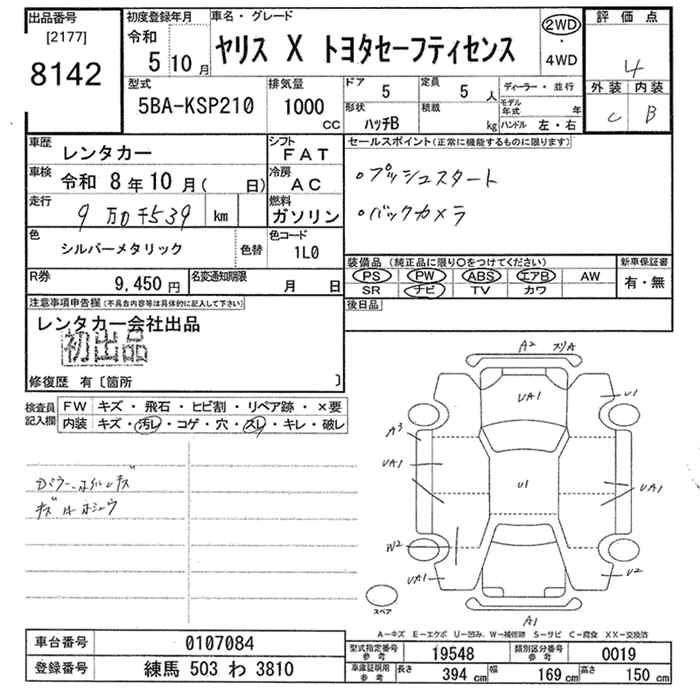 出品番号
[2177]
8142
初度登録年月
令和
5 10 月
車名・グレード
ヤリス X トヨタセーフティセンス
2WD
・
4WD
評価点
4
外装 内装
C B
型式
5BA-KSP210
排気量
1000
CC
ドア 5
形状 ハッチB
定員 5 人
積載 kg
ディーラー・並行
モデル年式 年
ハンドル 左・右
車歴 レンタカー
シフト FAT
車検 令和 8年10月( 日)
冷房 AC
走行 9万0千539 km
燃料 ガソリン
色 シルバーメタリック
色替
色コード 1L0
R券 9,450 円
名変通知期限 月 日
セールスポイント(正常に機能するものに限ります)
。プッシュスタート
。バックカメラ
装備品 (純正品に限り○をつけてください)
新車保証書
PS PW ABS エアB AW
有・無
SR ナビ TV カワ
後日品
注意事項申告欄(不具合内容等は具体的に記入して下さい)
レンタカー会社出品
初出品
修復歴 有〔箇所 〕
検査員記入欄
FW キズ・飛石・ヒビ割・リペア跡・×要
内装 キズ・汚レ・コゲ・穴・スレ・キレ・破レ
A2
UA1
U1
A3
UA1
U1
UA1
W2
UA1
U2
A1
スペア
A-キズ E-エクボ U-凹み、W-補修跡 S-サビ C-腐食 XX-交換済
車台番号 0107084
登録番号 練馬 503 わ 3810
型式指定番号参考 19548
類別区分番号参考 0019
車庫証明用参考 長さ 394 cm 幅 169 cm 高さ 150 cm